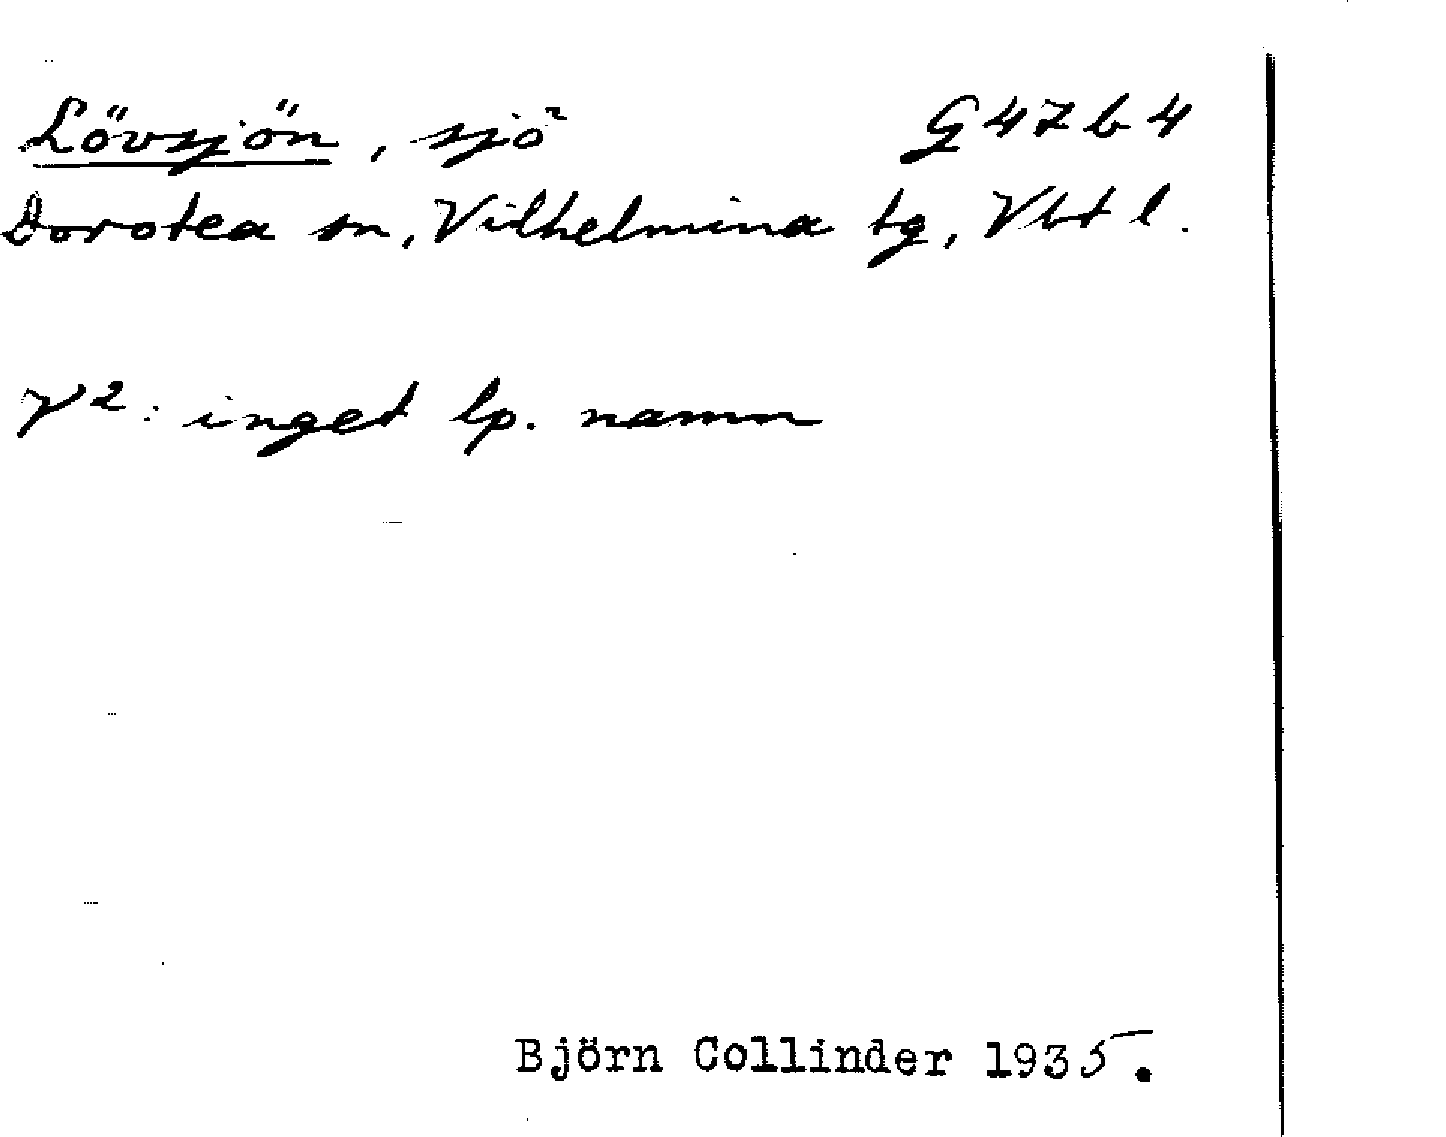 Lövsjön, sjö G47b4
Dorotea sn, Vilhelmina tg, Vbt l.
V2: inget lp. namn
Björn Collinder 1935.